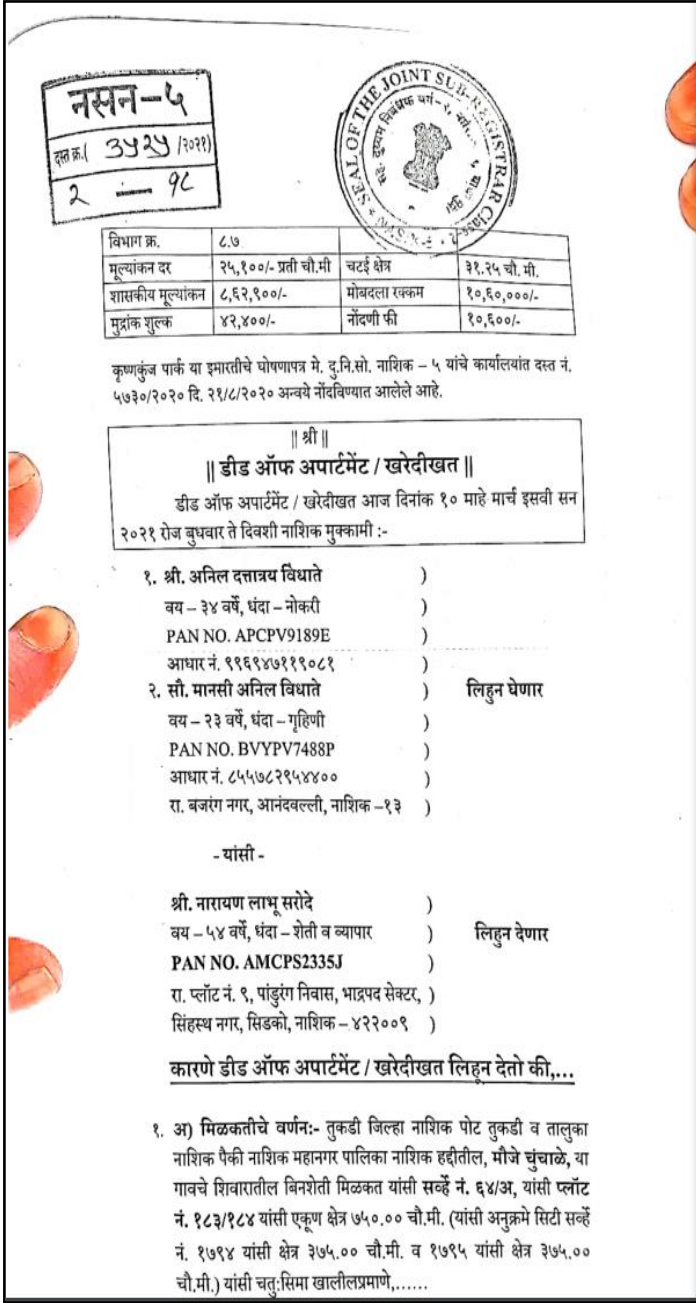 नसन-५
दस्त क्र.( ३५२५ /२०२१)
२ — १८
SEAL OF THE JOINT SUB-REGISTRAR Class-2
सह. दुय्यम निबंधक वर्ग-२,
विभाग क्र. ८.७
मूल्यांकन दर २५,१००/- प्रती चौ.मी चटई क्षेत्र ३१.२५ चौ. मी.
शासकीय मूल्यांकन ८,६२,९००/- मोबदला रक्कम १०,६०,०००/-
मुद्रांक शुल्क ४२,४००/- नोंदणी फी १०,६००/-
कृष्णकुंज पार्क या इमारतीचे घोषणापत्र मे. दु.नि.सो. नाशिक – ५ यांचे कार्यालयांत दस्त नं.
५७३०/२०२० दि. २१/८/२०२० अन्वये नोंदविण्यात आलेले आहे.
|| श्री ||
|| डीड ऑफ अपार्टमेंट / खरेदीखत ||
डीड ऑफ अपार्टमेंट / खरेदीखत आज दिनांक १० माहे मार्च इसवी सन
२०२१ रोज बुधवार ते दिवशी नाशिक मुक्कामी :-
१. श्री. अनिल दत्तात्रय विधाते )
वय – ३४ वर्षे, धंदा – नोकरी )
PAN NO. APCPV9189E )
आधार नं. ९९६९४७११९०८१ )
२. सौ. मानसी अनिल विधाते ) लिहुन घेणार
वय – २३ वर्षे, धंदा – गृहिणी )
PAN NO. BVYPV7488P )
आधार नं. ८५५७८२९५४४०० )
रा. बजरंग नगर, आनंदवल्ली, नाशिक –१३ )
- यांसी -
श्री. नारायण लाभू सरोदे )
वय – ५४ वर्षे, धंदा – शेती व व्यापार ) लिहुन देणार
PAN NO. AMCPS2335J )
रा. प्लॉट नं. ९, पांडुरंग निवास, भाद्रपद सेक्टर, )
सिंहस्थ नगर, सिडको, नाशिक – ४२२००९ )
कारणे डीड ऑफ अपार्टमेंट / खरेदीखत लिहून देतो की,...
१. अ) मिळकतीचे वर्णन:- तुकडी जिल्हा नाशिक पोट तुकडी व तालुका
नाशिक पैकी नाशिक महानगर पालिका नाशिक हद्दीतील, मौजे चुंचाळे, या
गावचे शिवारातील बिनशेती मिळकत यांसी सर्व्हे नं. ६४/अ, यांसी प्लॉट
नं. १८३/१८४ यांसी एकूण क्षेत्र ७५०.०० चौ.मी. (यांसी अनुक्रमे सिटी सर्व्हे
नं. १७९४ यांसी क्षेत्र ३७५.०० चौ.मी. व १७९५ यांसी क्षेत्र ३७५.००
चौ.मी.) यांसी चतु:सिमा खालीलप्रमाणे,......